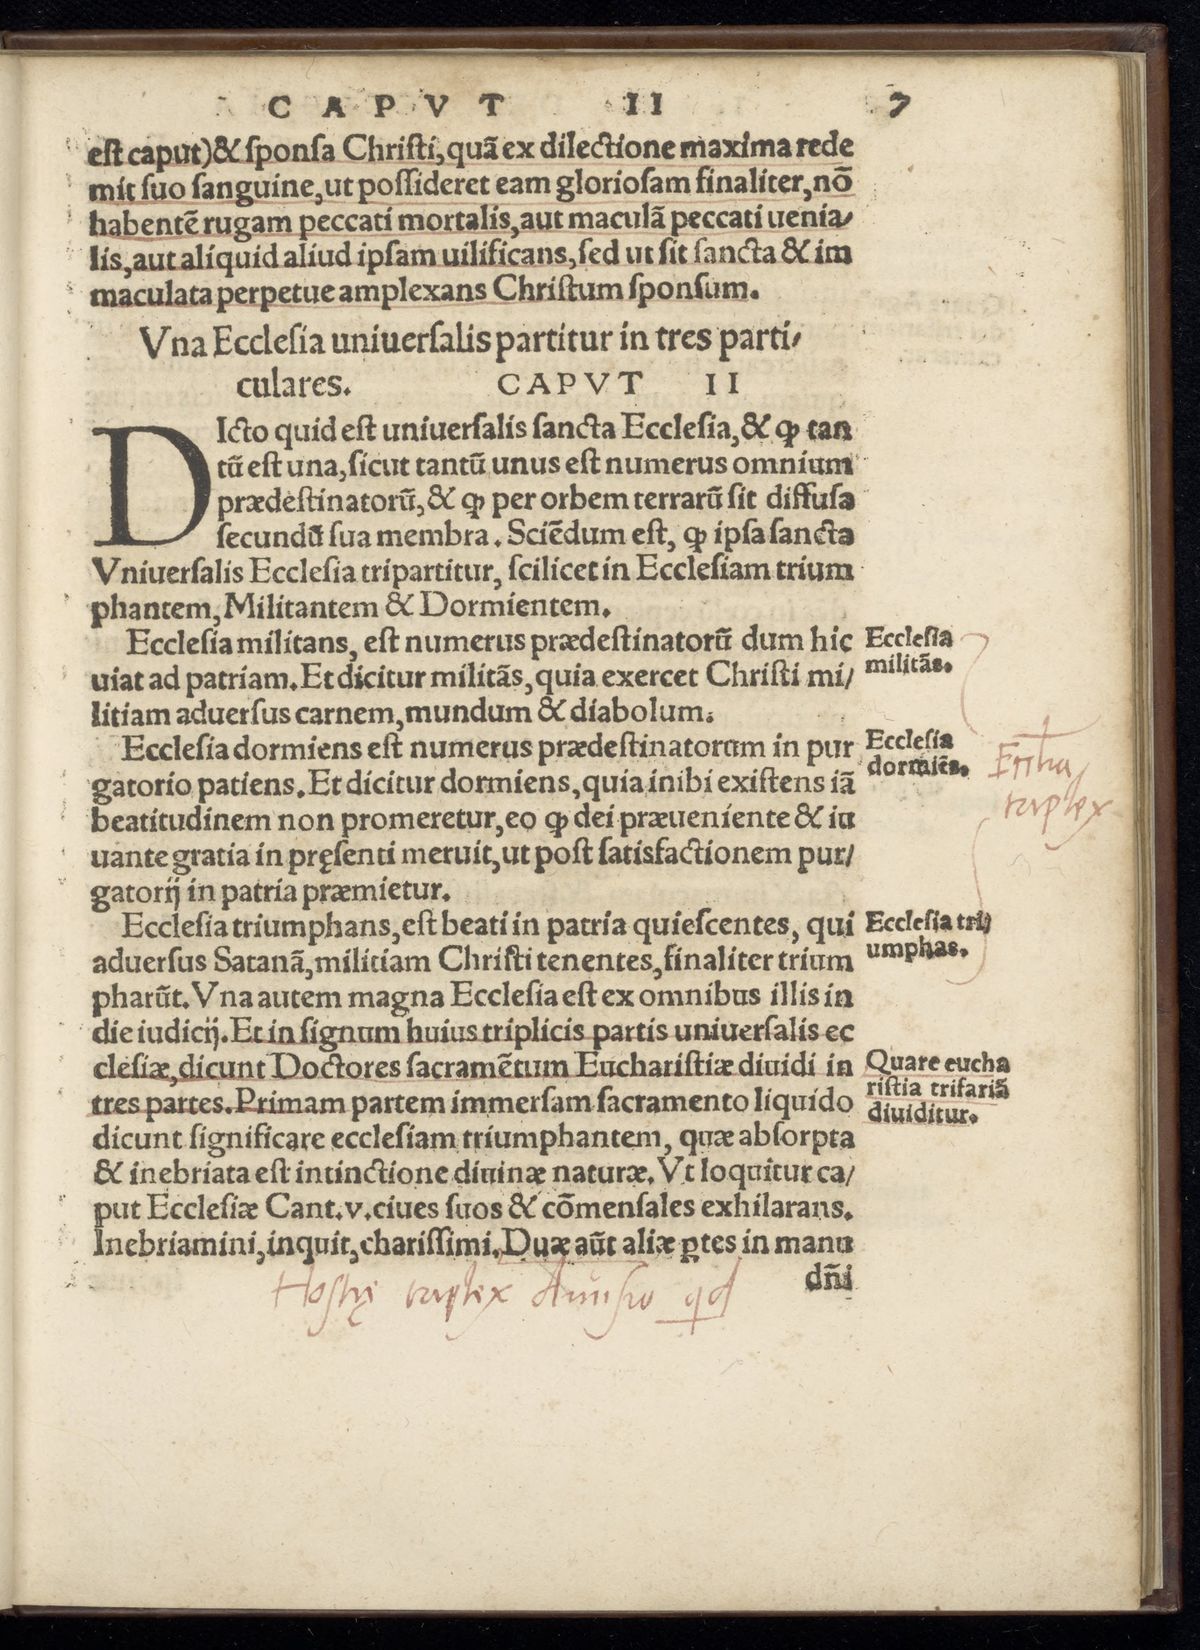 CAPVT II 7
eſt caput)& ſponſa Chriſti,quā ex dilectione maxima rede
mit ſuo ſanguine,ut poſſideret eam glorioſam finaliter,nō
habentē rugam peccati mortalis,aut maculā peccati uenia/
lis,aut aliquid aliud ipſam uilificans,ſed ut ſit ſancta & im
maculata perpetue amplexans Chriſtum ſponſum.
Vna Eccleſia uniuerſalis partitur in tres parti/
culares. CAPVT II
DIcto quid eſt uniuerſalis ſancta Eccleſia,& ꝙ tan
tū eſt una,ſicut tantū unus eſt numerus omnium
prædeſtinatorū,& ꝙ per orbem terrarū ſit diffuſa
ſecundū ſua membra. Sciēdum eſt, ꝙ ipſa ſancta
Vniuerſalis Eccleſia tripartitur, ſcilicet in Eccleſiam trium
phantem, Militantem & Dormientem.
Eccleſia militans, eſt numerus prædeſtinatorū dum hic
uiat ad patriam. Et dicitur militās, quia exercet Chriſti mi/
litiam aduerſus carnem, mundum & diabolum.
Eccleſia
militās.
Eccleſia dormiens eſt numerus prædeſtinatorum in pur
gatorio patiens. Et dicitur dormiens, quia inibi exiſtens iā
beatitudinem non promeretur, eo ꝙ dei præueniente & iu
uante gratia in pręſenti meruit, ut poſt ſatisfactionem pur/
gatorij in patria præmietur.
Eccleſia
dormiēs.
triplex
Eccleſia triumphans, eſt beati in patria quieſcentes, qui
aduerſus Satanā, militiam Chriſti tenentes, finaliter trium
pharūt. Vna autem magna Eccleſia eſt ex omnibus illis in
die iudicij. Et in ſignum huius triplicis partis uniuerſalis ec
cleſiæ, dicunt Doctores ſacramētum Euchariſtiæ diuidi in
tres partes. Primam partem immerſam ſacramento liquido
dicunt ſignificare eccleſiam triumphantem, quæ abſorpta
& inebriata eſt intinctione diuinæ naturæ. Vt loquitur ca/
put Eccleſiæ Cant.v.ciues ſuos & cōmenſales exhilarans.
Inebriamini, inquit, chariſſimi. Duæ aūt aliæ ꝑtes in manu
dñi
Eccleſia tri/
umphas.
Quare eucha
riſtia trifariā
diuiditur.
Hoſtię triplex diuiſio qd